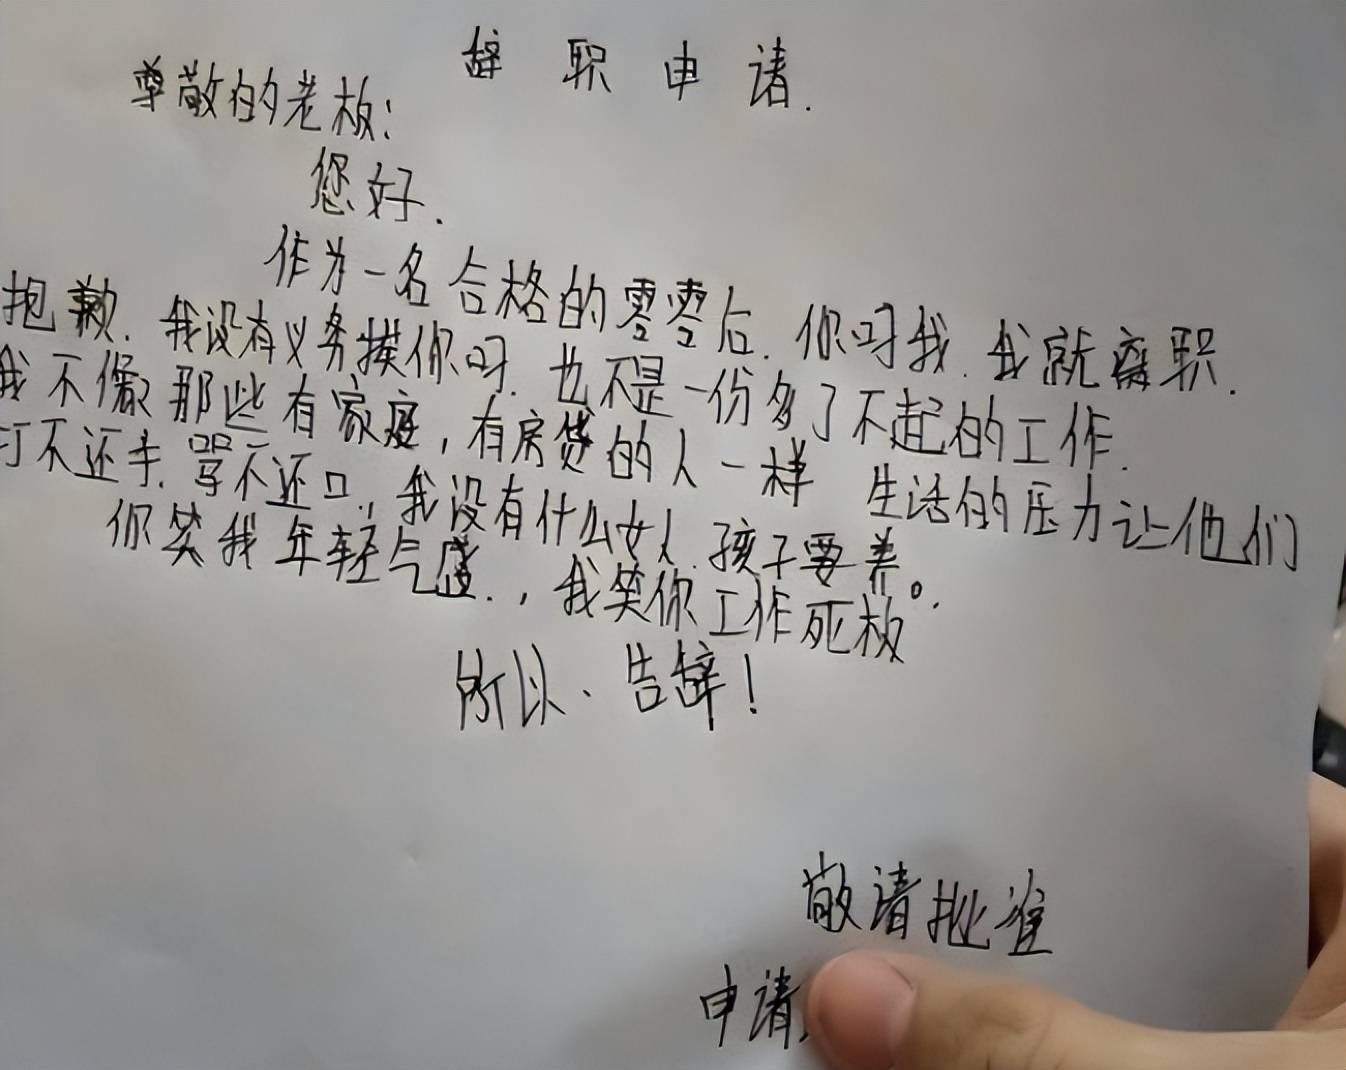 辞职申请.
尊敬的老板:
您好.
作为一名合格的零零后.你叼我.我就离职.
抱歉.我没有义务揍你叼.也不是一份多了不起的工作.
我不像那些有家庭,有房贷的人一样 生活的压力让他们
打不还手.骂不还口,我没有什么女人.孩子要养。
你笑我年轻气盛.,我笑你工作死板.
所以.告辞!
敬请批准
申请